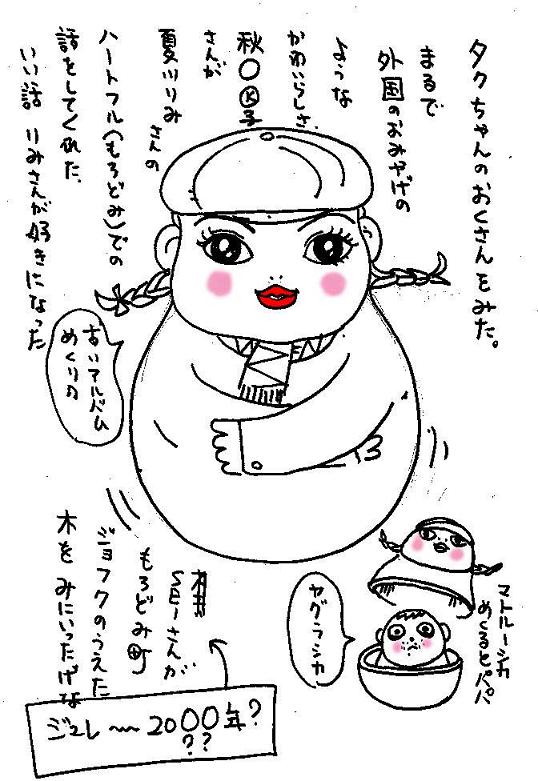 タクちゃんのおくさんをみた。
まるで
外国のおみやげの
ような
かわいらしさ.
秋〇㋖子
さんが
夏川りみ
さんの
ハートフル(もろどみ)での
話をしてくれた.
いい話 りみさんが好きになった
古いアルバム
めくりの
SEIさんが
もろどみ町
ジョフクのうえた
木を みにいったげな
ジュレ〜 2000年?
??
マトルーシカ
めくるとパパ
ヤグラシカ